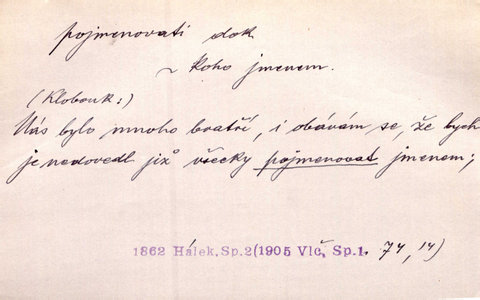 pojmenovati dok
~ koho jmenem.
(Klobouk:)
Nás bylo mnoho bratří, i obávám se, že bych
je nedovedl již všecky pojmenovat jmenem;
1862 Hálek, Sp.2(1905 Vlč, Sp.1. 74, 14)